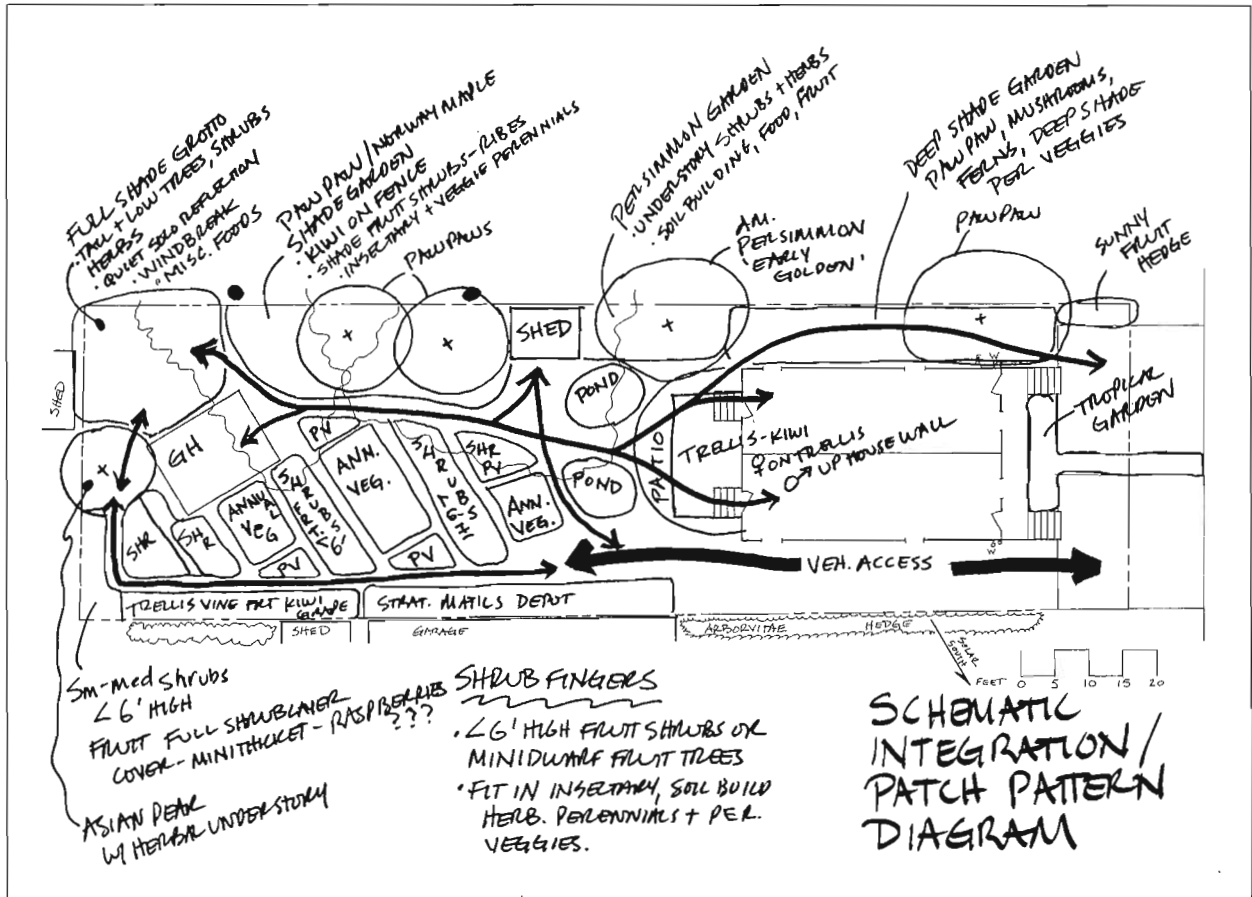 FULL SHADE GROTTO
• TALL + LOW TREES, SHRUBS
HERBS
• QUIET SOLO REFLECTION
• WINDBREAK
• MISC. FOODS
PAW PAW / NORWAY MAPLE
SHADE GARDEN
• KIWI ON FENCE
• SHADE FRUIT SHRUBS - RIBES
• INSECTARY + VEGGIE PERENNIALS
PAWPAWS
PERSIMMON GARDEN
• UNDERSTORY SHRUBS + HERBS
• SOIL BUILDING, FOOD, FRUIT
AM.
PERSIMMON
'EARLY
GOLDEN'
DEEP SHADE GARDEN
PAW PAW, MUSHROOMS,
FERNS, DEEP SHADE
PER. VEGGIES
PAWPAW
SUNNY
FRUIT
HEDGE
SHED
SHED
POND
POND
PATIO
TRELLIS-KIWI
♀ ON TRELLIS
♂ UP HOUSE WALL
TROPICAL
GARDEN
W
GH
PV
ANN.
VEG.
SHRUBS
<6'HI
SHR
PV
ANN.
VEG.
SHRUBS
<6'
ANNUAL
VEG
SHR
SHR
PV
PV
W
VEH. ACCESS
TRELLIS VINE FRT KIWI
GRAPE
STRAT. MATLS DEPOT
SHED
GARAGE
ARBORVITAE HEDGE
SOLAR
SOUTH
FEET 0 5 10 15 20
Sm-med shrubs
< 6' HIGH
FRUIT FULL SHRUBLAYER
COVER - MINITHICKET - RASPBERRIES
???
ASIAN PEAR
W/ HERB UNDERSTORY
SHRUB FINGERS
• <6' HIGH FRUIT SHRUBS OR
MINIDWARF FRUIT TREES
• FIT IN INSECTARY, SOIL BUILD
HERB. PERENNIALS + PER.
VEGGIES.
SCHEMATIC
INTEGRATION/
PATCH PATTERN
DIAGRAM